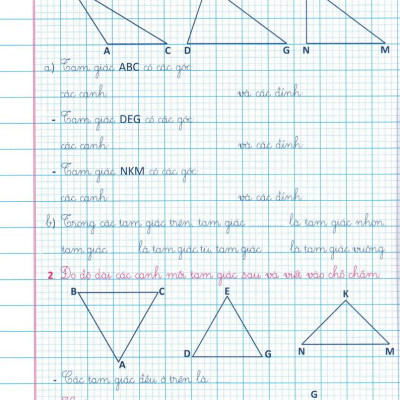 A C D G N M
a) Tam giác ABC có các góc
các cạnh và các đỉnh
- Tam giác DEG có các góc
các cạnh và các đỉnh
- Tam giác NKM có các góc
các cạnh và các đỉnh
b) Trong các tam giác trên, tam giác là tam giác nhọn,
tam giác là tam giác tù, tam giác là tam giác vuông
2. Đo độ dài các cạnh mỗi tam giác sau và viết vào chỗ chấm
B C E K
A D G N M
- Các tam giác đều ở trên là
G